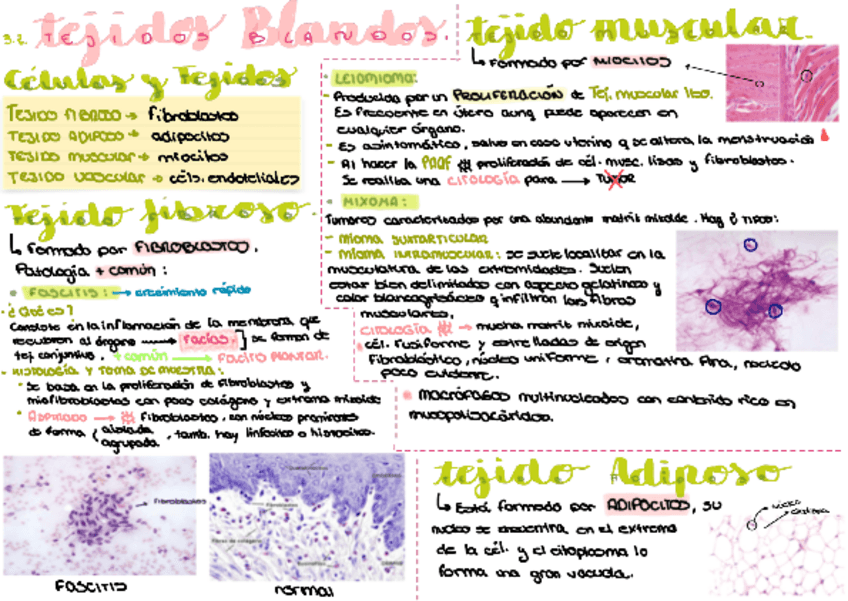 3.2. tejidos Blandos.
TEJIDOS BLANDOS.
Células y Tejidos
TEJIDO FIBROSO → fibroblastos
TEJIDO ADIPOSO → adipocitos
TEJIDO MUSCULAR → miocitos
TEJIDO VASCULAR → céls. endoteliales
Tejido fibroso.
↳ Formado por FIBROBLASTOS.
Patología + común:
FASCITIS: → crecimiento rápido
¿Qué es?
Consiste en la inflamación de la membrana que
recubren al órgano → FACIAS. se forman de
tej. conjuntivo. + común → FACITIS PLANTAR.
- HISTOLOGÍA Y TOMA DE MUESTRA:
Se basa en la proliferación de fibroblastos y
miofibroblastos con poco colágeno y estroma mixoide
ASPIRADO → fibroblastos, con núcleos prominentes
de forma aislada agrupada, tamb. hay linfocitos o histiocitos.
Fibroblastos
FASCITIS
normal
tejido muscular.
↳ Formado por MIOCITOS
LEIOMIOMA:
- Producida por un PROLIFERACIÓN de Tej. muscular liso.
Es frecuente en útero aunq puede aparecer en
cualquier órgano.
- Es asintomático, salvo en caso uterino q se altera la menstruación
- Al hacer la PAAF proliferación de cél. musc. lisas y fibroblastos.
Se realiza una CITOLOGÍA para → TUMOR
MIXOMA:
Tumores caracterizados por una abundante matriz mixoide. Hay 2 tipos:
- MIOMA YUXTARTICULAR
- MIOMA INTRAMUSCULAR: se suele localizar en la
musculatura de las extremidades. Suelen
estar bien delimitados con aspecto gelatinoso y
color blanco grisáceo q infiltran las fibras
musculares.
CITOLOGÍA → mucha matriz mixoide,
cél. fusiforme y estrelladas de origen
fibroblástico, núcleo uniforme, cromatina fina, nucleolo
poco evidente.
macrófagos multinucleados con contenido rico en
mucopolisacáridos.
tejido Adiposo
↳ Está formado por ADIPOCITOS, su
núcleo se encuentra en el extremo
de la cél. y el citoplasma lo
forma una gran vacuola.